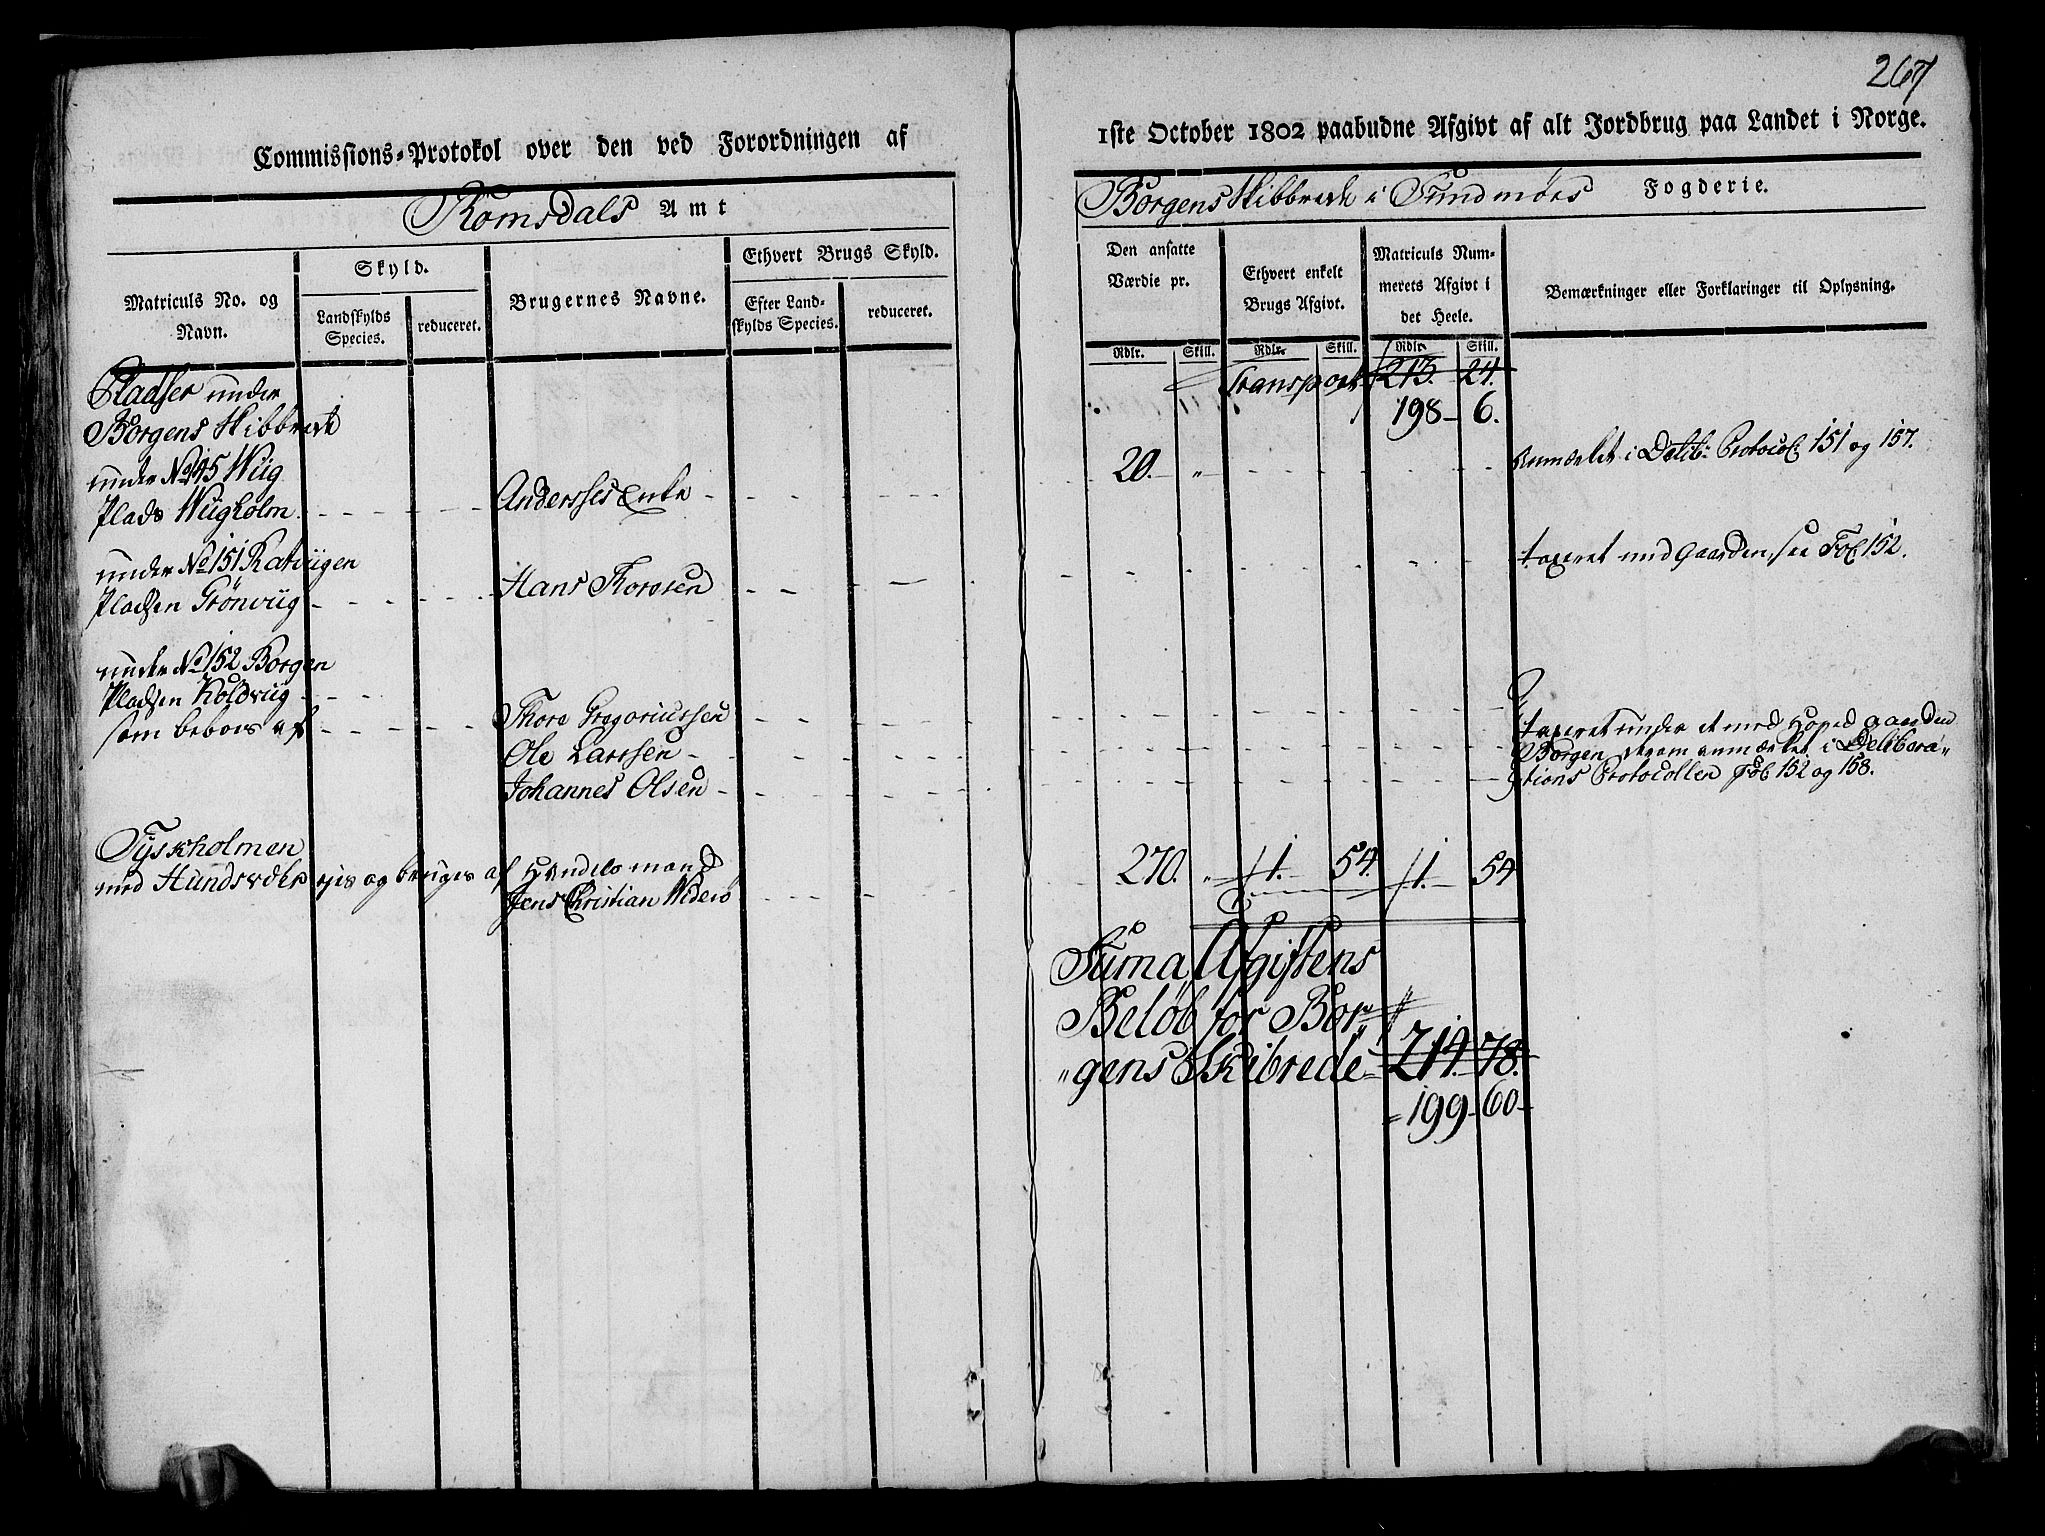 267
Commissions-Protokol over den ved Forordningen af
1ste October 1802 paabudne Afgivt af alt Jordbrug paa Landet i Norge.
Romsdals Amt
Borgens Skibbrede i Sundmørs Fogderie.
Matriculs No. og Navn.
Skyld.
Landskylds Species.
reduceret.
Brugernes Navne.
Ethvert Brugs Skyld.
Efter Landskylds Species.
reduceret.
Den ansatte Værdie pr.
Ethvert enkelt Brugs Afgivt.
Matriculs Nummerets Afgivt i det Heele.
Bemærkninger eller Forklaringer til Oplysning.
Rdlr. Skill. Rdlr. Skill. Rdlr. Skill.
Transport 213. 24.
198 - 6.
Pladser under
Borgens Skibbrede
under No 145 Wiig
Plads Wiigholm - - - Anderses Enke - - - 20. " - - - Anmærket i Delib: Protocol 151 og 157.
under No 151 Ratviigen
Pladsen Grønviig - - - Hans Thorosen - - - taxeret med Gaarden, see Fol 152.
under No 152 Borgen
Pladsen Koldviig - - -
som beboes af - - - Thore Gregoriussen - - -
Ole Larssen - - -
Johannes Olsen - - -
taxeret under et med Hoved gaarden
Borgen, som anmærket i Delibera-
tions Protocollen Fol 152 og 158.
Tyskholmen
med Hundsvær ejes og bruges af Handelsmand
Jens Christian Widerø - - - 270. " 1. 54. 1. 54
Suma Afgiftens
Beløb for Bor-
"gens Skibrede 214. 78.
= 199 - 60 -